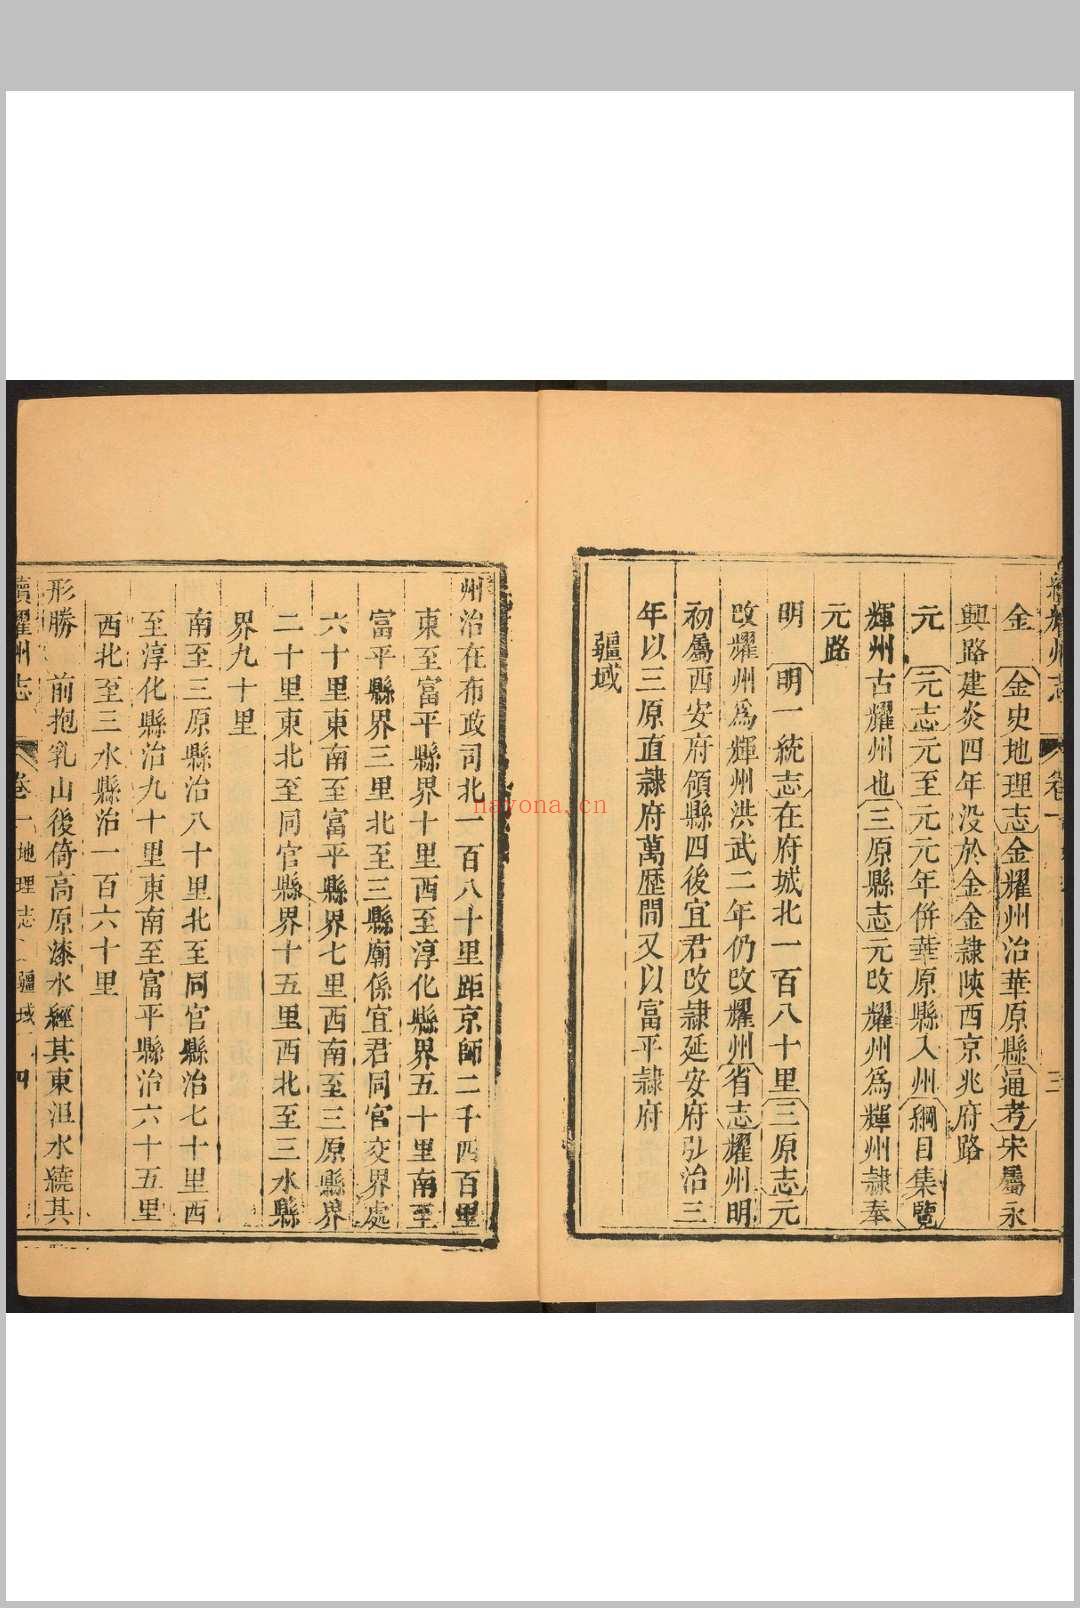 續耀州志 卷一
金 金史地理志金耀州治華原縣通考宋屬永
興路建炎四年没於金金隷陝西京兆府路
元 元志元至元元年併華原縣入州綱目集覽
輝州古耀州也三原縣志元改耀州爲輝州隷奉
元路
明 明一統志在府城北一百八十里三原志元
改耀州爲輝州洪武二年仍改耀州省志耀州明
初屬西安府領縣四後宜君改隷延安府弘治三
年以三原直隷府萬歷間又以富平隷府
疆域
州治在布政司北一百八十里距京師二千四百里
東至富平縣界十里西至淳化縣界五十里南至
富平縣界三里北至三縣廟係宜君同官交界處
六十里東南至富平縣界七里西南至三原縣界
二十里東北至同官縣界十五里西北至三水縣
界九十里
南至三原縣治八十里北至同官縣治七十里西
至淳化縣治九十里東南至富平縣治六十五里
西北至三水縣治一百六十里
形勝 前抱乳山後倚高原漆水經其東沮水繞其
續耀州志 卷一 地理志 疆域 四
nayona.cn